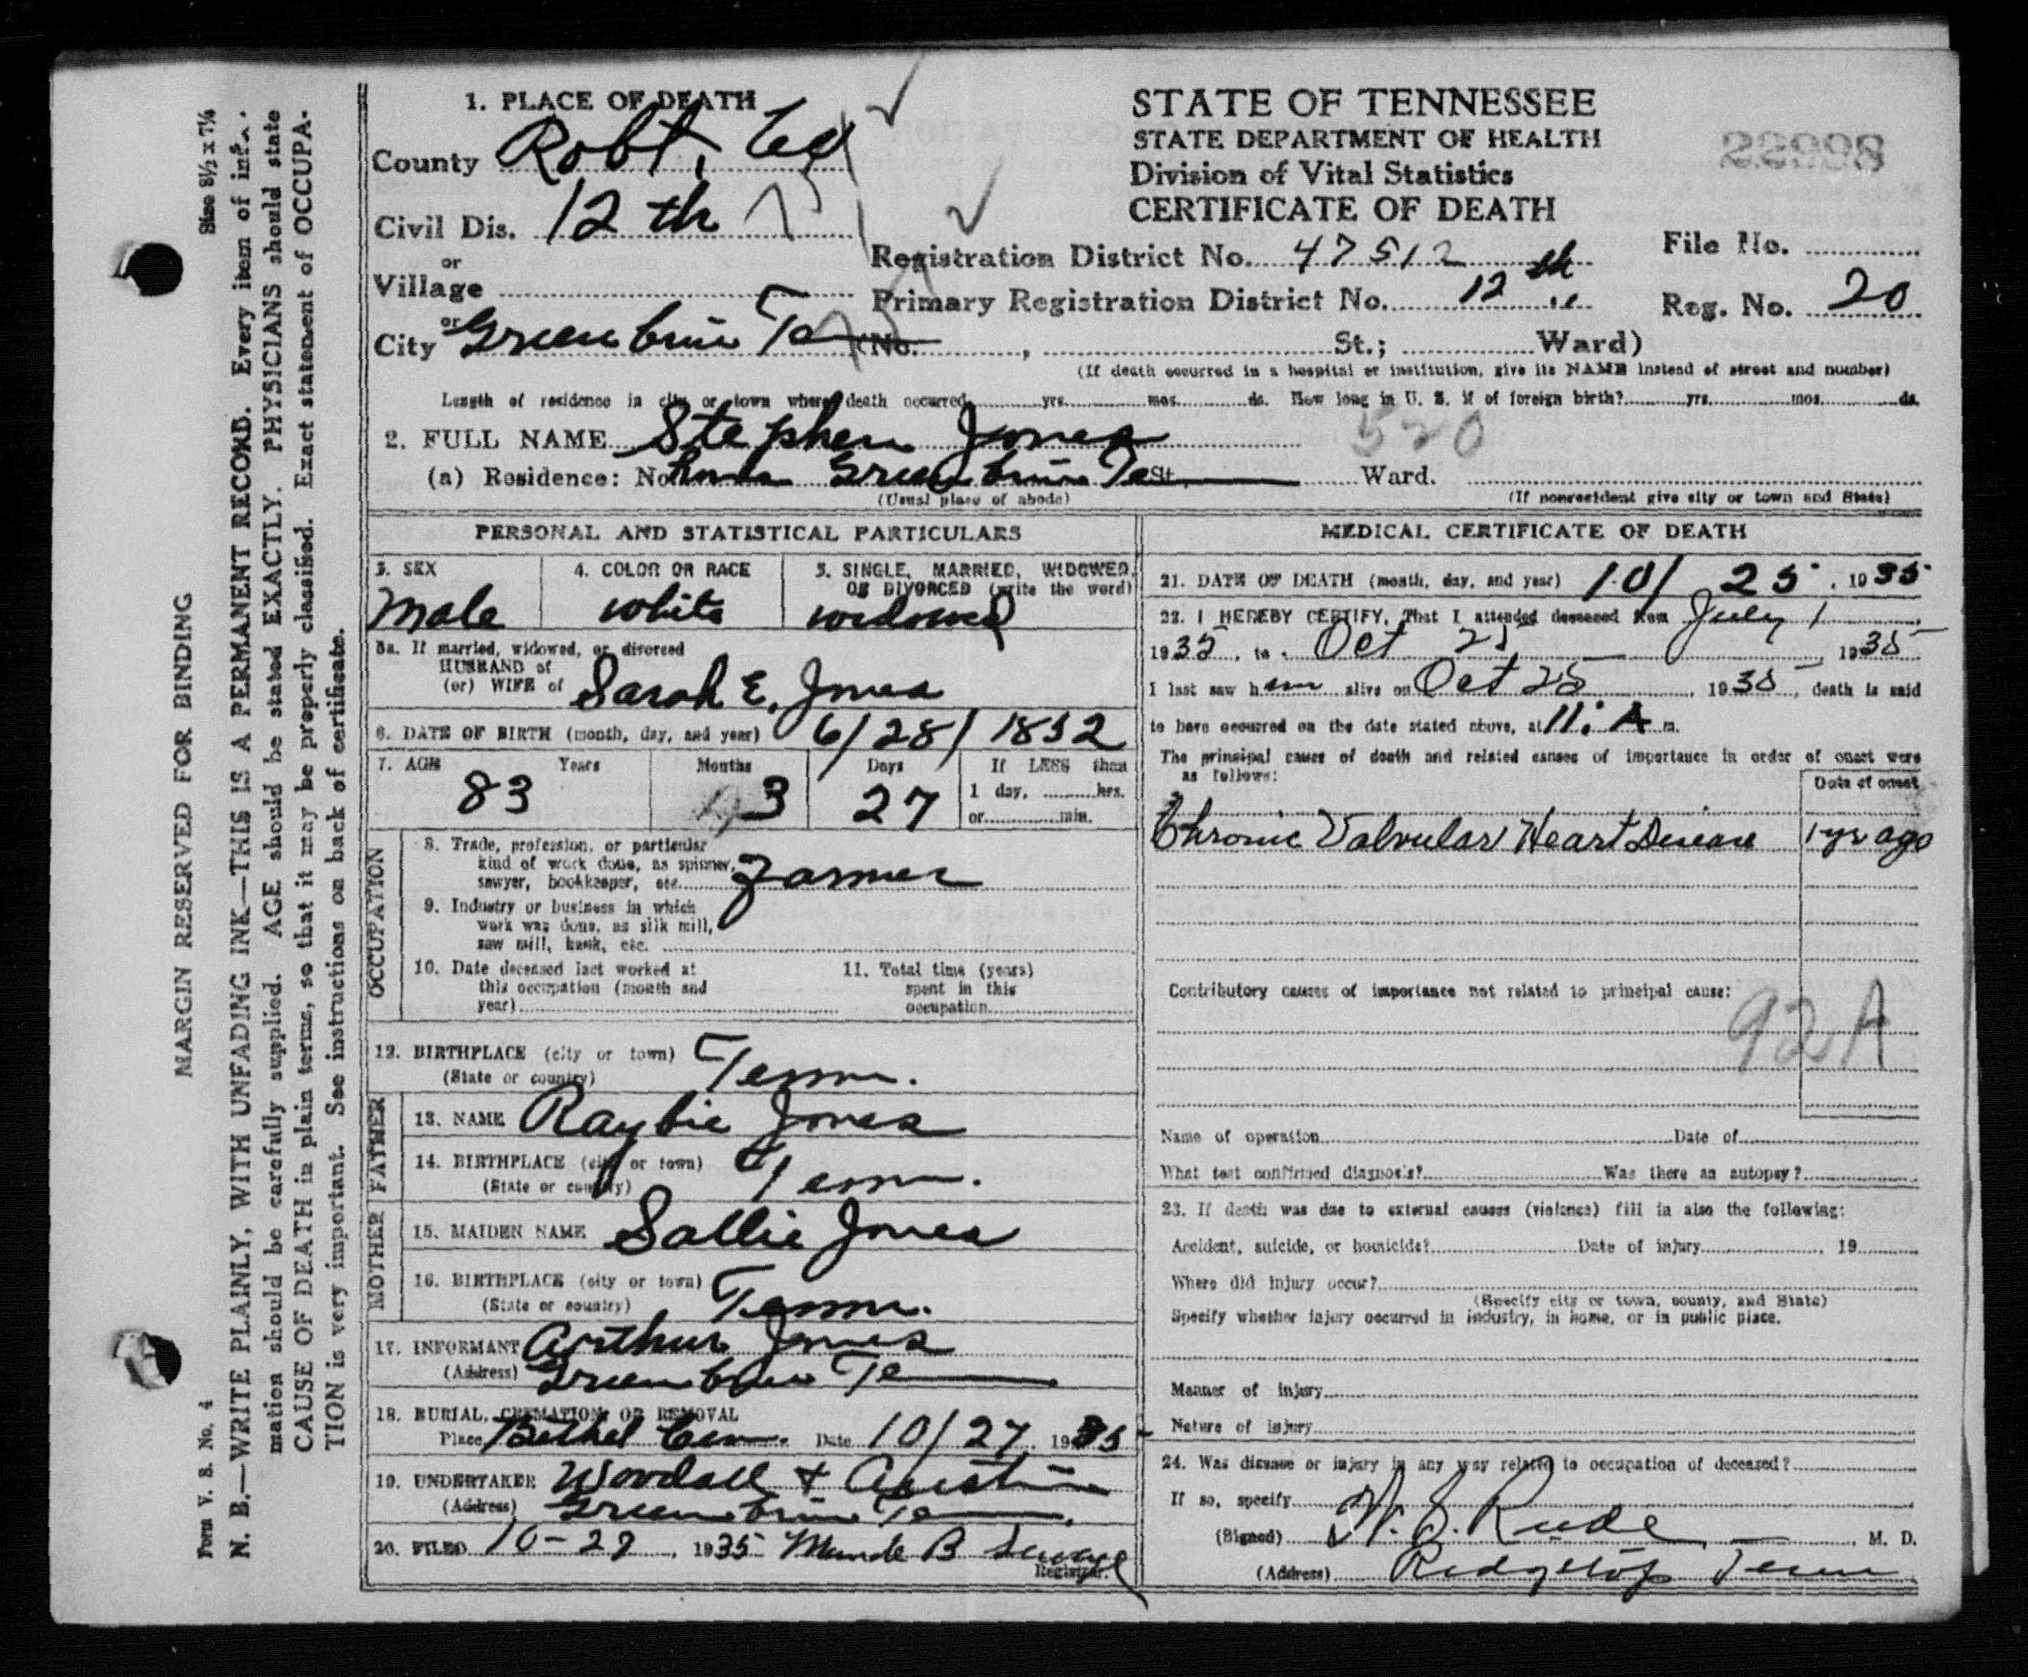 Size 8½ x 7¼
MARGIN RESERVED FOR BINDING
N. B.—WRITE PLAINLY, WITH UNFADING INK—THIS IS A PERMANENT RECORD. Every item of infor-
mation should be carefully supplied. AGE should be stated EXACTLY. PHYSICIANS should state
CAUSE OF DEATH in plain terms, so that it may be properly classified. Exact statement of OCCUPA-
TION is very important. See instructions on back of certificate.
Form V. S. No. 4
1. PLACE OF DEATH
County Robt. Co
Civil Dis. 12 th
or
Village
or
City Greenbrier Te (No. , St.; Ward)
STATE OF TENNESSEE
STATE DEPARTMENT OF HEALTH
Division of Vital Statistics
CERTIFICATE OF DEATH
22998
Registration District No. 47512 File No.
Primary Registration District No. 12 th Reg. No. 20
(If death occurred in a hospital or institution, give its NAME instead of street and number)
Length of residence in city or town where death occurred yrs. mos. ds. How long in U. S. if of foreign birth? yrs. mos. ds.
2. FULL NAME Stephen Jones 520
(a) Residence: No. Greenbrier Te St. Ward.
(Usual place of abode) (If nonresident give city or town and State)
PERSONAL AND STATISTICAL PARTICULARS
3. SEX Male
4. COLOR OR RACE White
5. SINGLE, MARRIED, WIDOWED, OR DIVORCED (write the word) widowed
5a. If married, widowed, or divorced
HUSBAND of
(or) WIFE of Sarah E. Jones
6. DATE OF BIRTH (month, day, and year) 6/28/1852
7. AGE Years Months Days If LESS than
83 3 27 1 day, hrs.
or min.
OCCUPATION
8. Trade, profession, or particular
kind of work done, as spinner,
sawyer, bookkeeper, etc. Farmer
9. Industry or business in which
work was done, as silk mill,
saw mill, bank, etc.
10. Date deceased last worked at
this occupation (month and
year)
11. Total time (years)
spent in this
occupation
12. BIRTHPLACE (city or town) Tenn.
(State or country)
FATHER
13. NAME Raybie Jones
14. BIRTHPLACE (city or town) Tenn.
(State or country)
MOTHER
15. MAIDEN NAME Sallie Jones
16. BIRTHPLACE (city or town) Tenn.
(State or country)
17. INFORMANT Arthur Jones
(Address) Greenbrier Te
18. BURIAL, CREMATION OR REMOVAL
Place Bethel Cem. Date 10/27 1935
19. UNDERTAKER Woodall + Austin
(Address) Greenbrier Te
20. FILED 10-29, 1935 Maude B
Registrar.
MEDICAL CERTIFICATE OF DEATH
21. DATE OF DEATH (month, day, and year) 10/ 25, 1935
22. I HEREBY CERTIFY, That I attended deceased from July 1
1935, to Oct 25, 1935
I last saw him alive on Oct 25, 1935, death is said
to have occurred on the date stated above, at 11: A m.
The principal cause of death and related causes of importance in order of onset were
as follows:
Date of onset
Chronic Valvular Heart Disease 1 yr ago
Contributory causes of importance not related to principal cause:
92A
Name of operation Date of
What test confirmed diagnosis? Was there an autopsy?
23. If death was due to external causes (violence) fill in also the following:
Accident, suicide, or homicide? Date of injury , 19
Where did injury occur?
(Specify city or town, county, and State)
Specify whether injury occurred in industry, in home, or in public place.
Manner of injury
Nature of injury
24. Was disease or injury in any way related to occupation of deceased?
If so, specify
(Signed) W. S. Rude, M. D.
(Address) Ridgetop Tenn